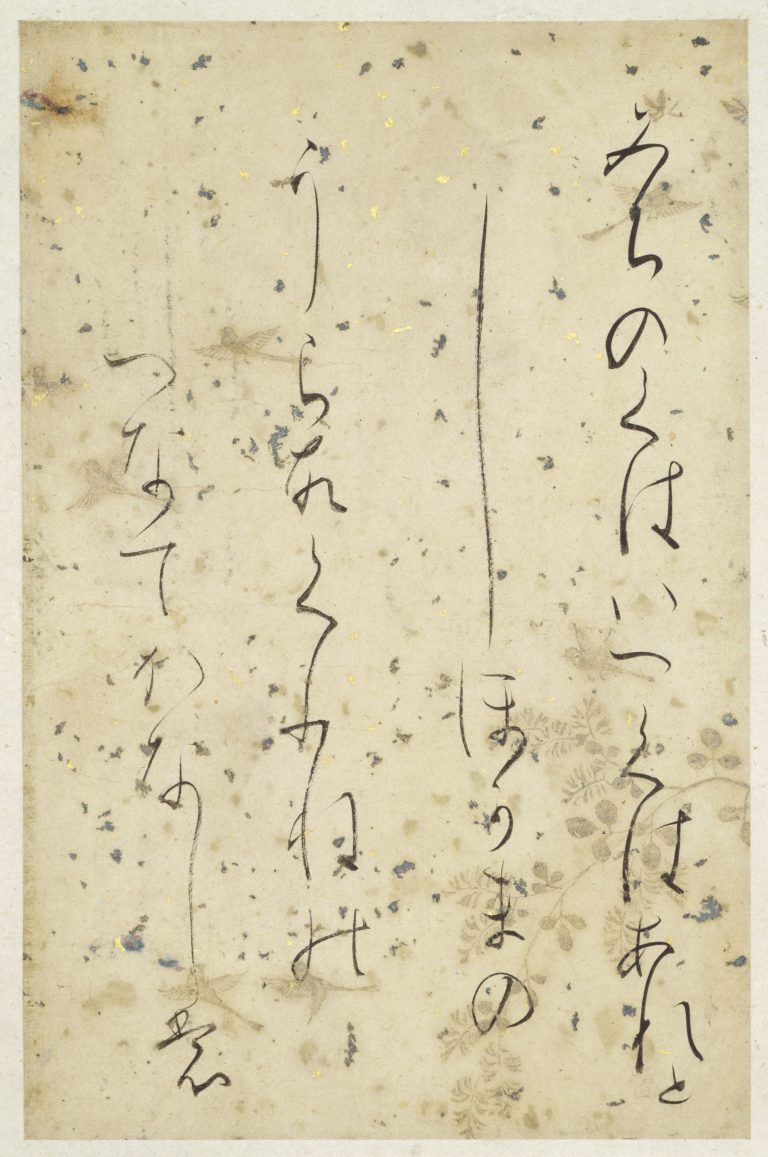 みちのくはいつくはあれと
しほかまの
うらこくふねの
つなてかなしも